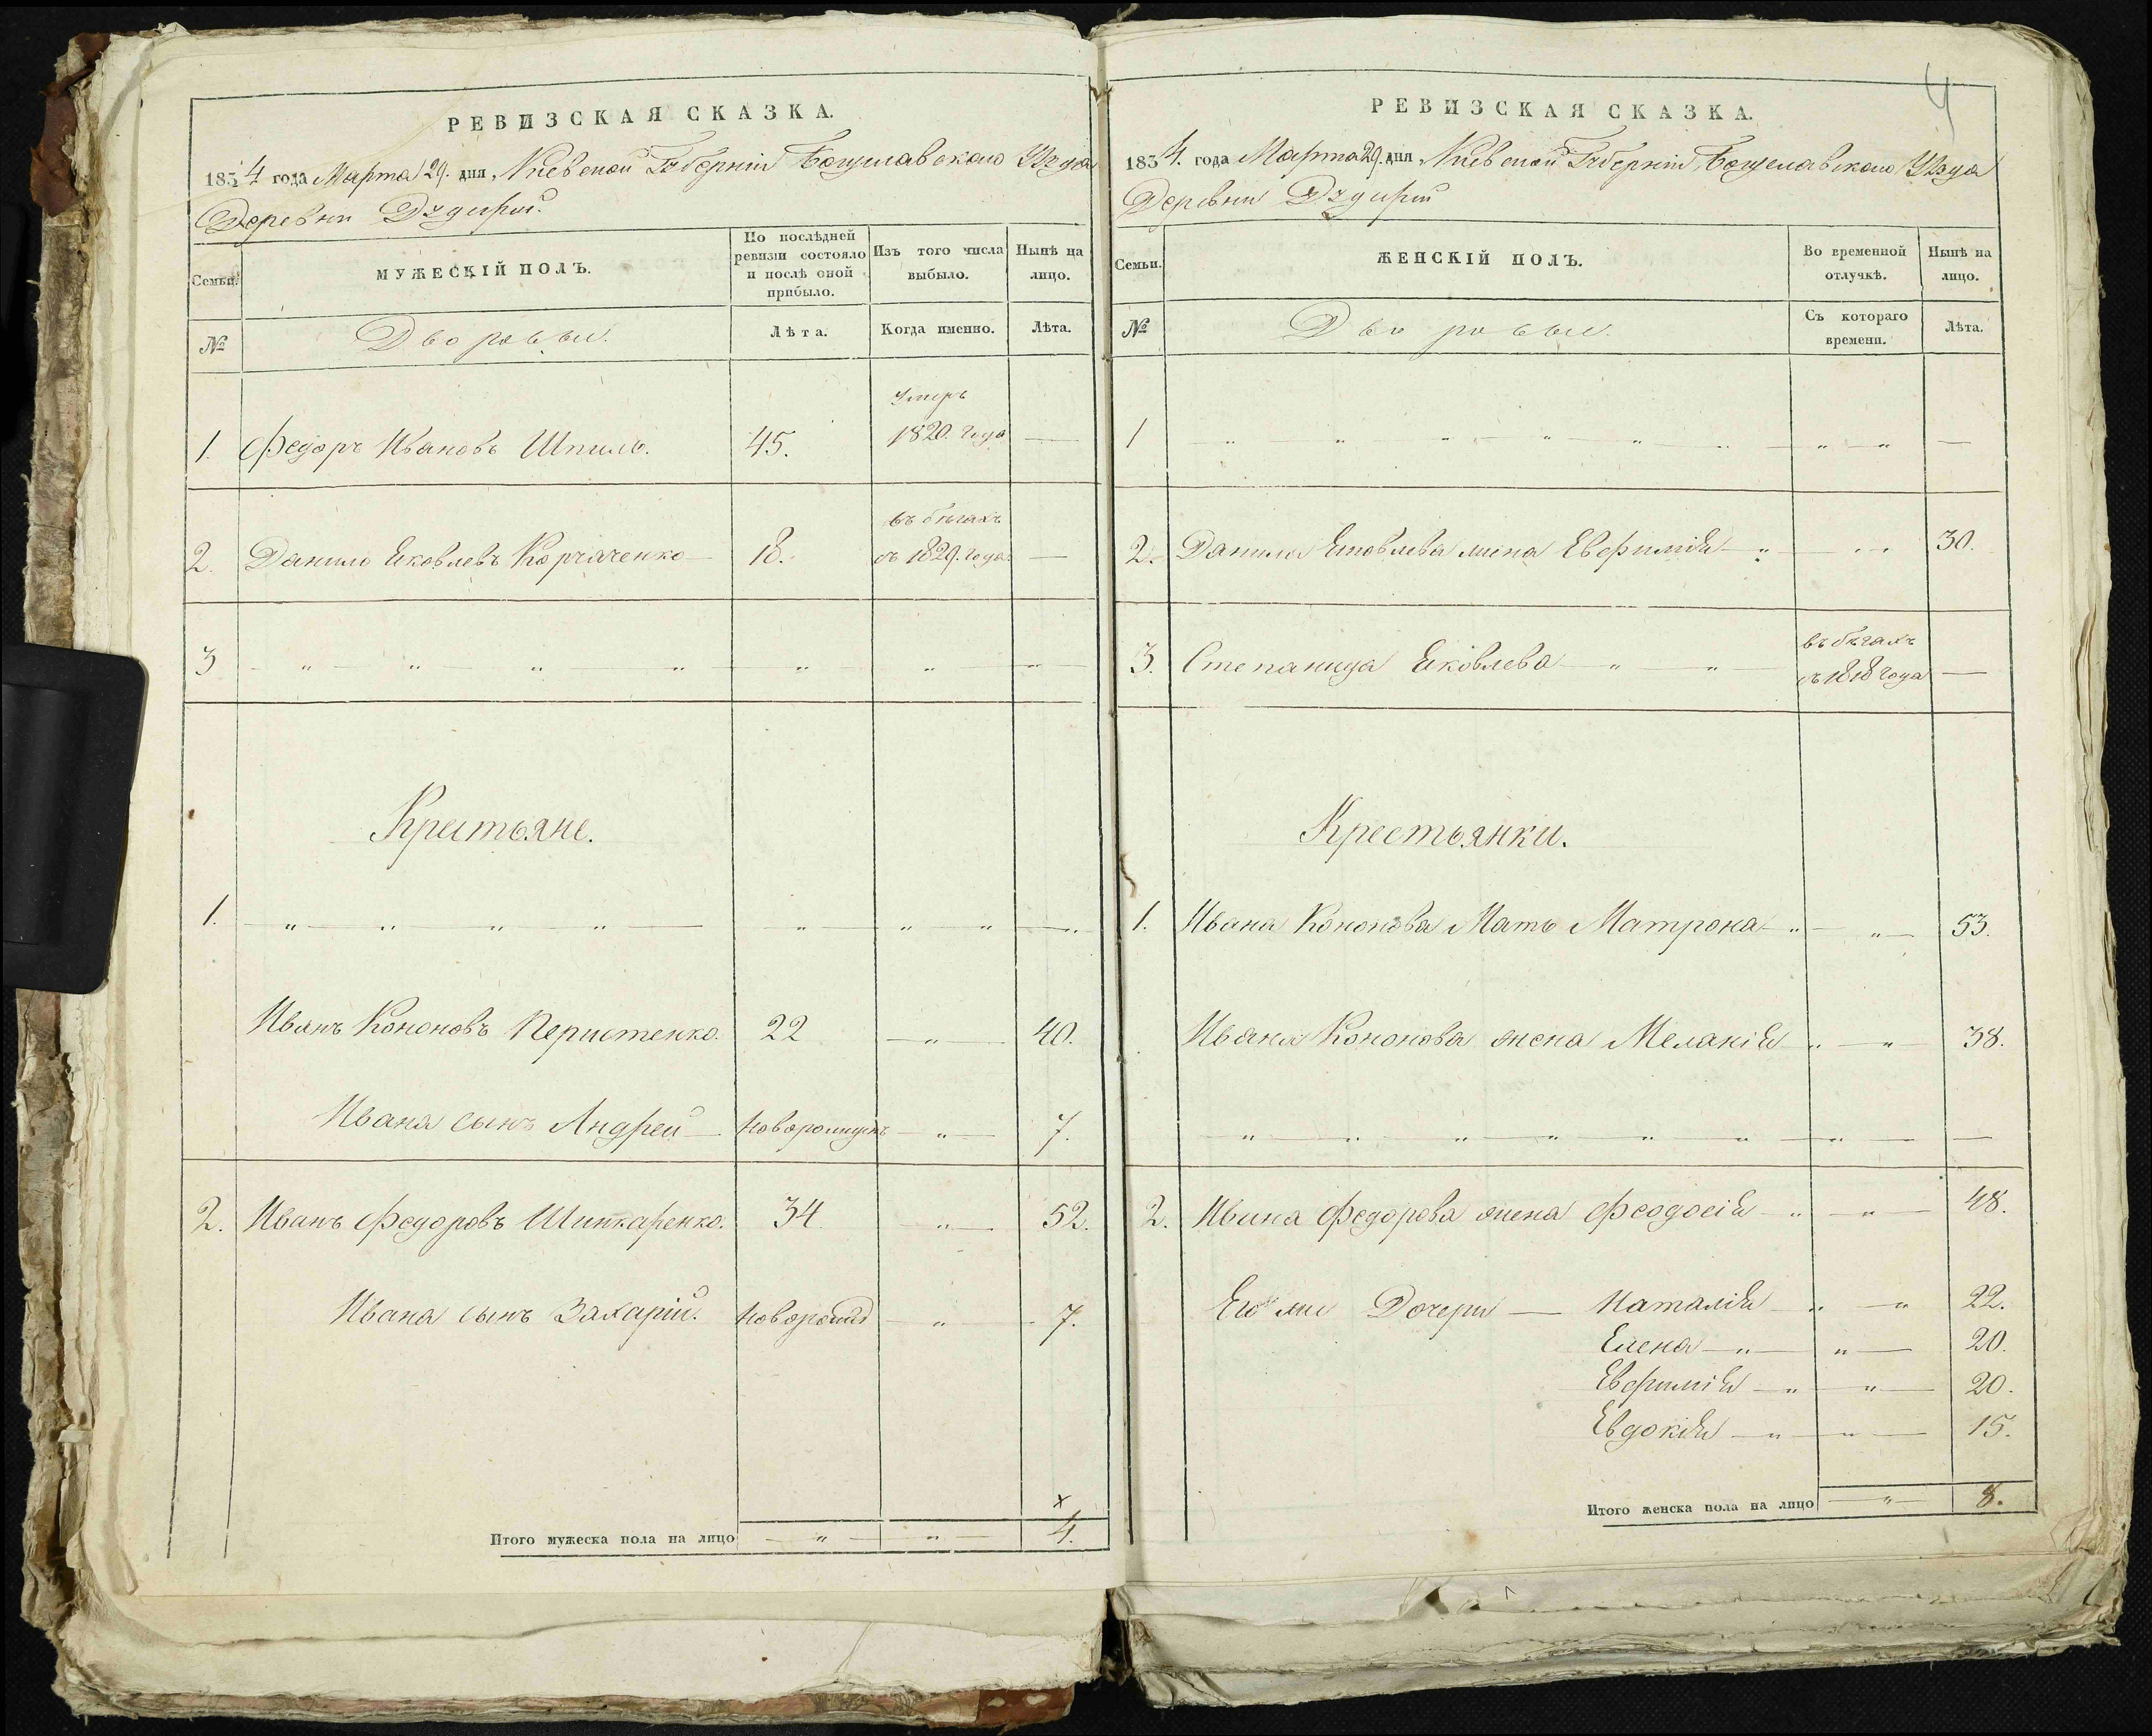 РЕВИЗСКАЯ СКАЗКА.
1834 года Марта 29. дня, Киевской Губерніи Богуславскаго Уѣзда
Деревни Дздирій
Семьи.
МУЖЕСКІЙ ПОЛЪ.
По послѣдней ревизіи состояло и послѣ оной прибыло.
Изъ того числа выбыло.
Нынѣ на лицо.
№
Дворовыи.
Лѣта.
Когда именно.
Лѣта.
умеръ
1. Федоръ Ивановъ Шпиль. 45. 1820. года —
въ бѣгахъ
2. Данило Яковлевъ Корчаченко 18. съ 1829. года —
3 — " — " — " — " — " — " — " —
Крестьяне.
1. — " — " — " — " — " — " — " — " —
Иванъ Кононовъ Перистенко. 22 — " — 40.
Ивана сынъ Андрей — новорожденъ — " — 7.
2. Иванъ Федоровъ Шинкаренко. 34 " — 52.
Ивана сынъ Захарій. новорожд — " — 7.
х
Итого мужеска пола на лицо — " — " — 4.
4
РЕВИЗСКАЯ СКАЗКА.
1834. года Марта 29. дня Киевской Губерніи Богуславскаго Уѣзда
Деревни Дздирій
Семьи.
ЖЕНСКІЙ ПОЛЪ.
Во временной отлучкѣ.
Нынѣ на лицо.
№
Дворовыи.
Съ котораго времени.
Лѣта.
1 " " " — " — " — " — " — " —
2. Данила Яковлева жена Евфимія — " — " — 30.
въ бѣгахъ
3. Степанида Яковлева — " — " съ 1818 года —
Крестьянки.
1. Ивана Кононова Мать Матрона — " — " — 53.
Ивана Кононова жена Меланія " — " — 38.
— " — " — " — " — " — " — " — —
2. Ивана Федорова жена Феодосія — " — " — 48.
Его же Дочери — Наталія — " — " 22.
Елена — " — " — 20.
Евфимія — " — " — 20.
Евдокія — " — " — 15.
Итого женска пола на лицо — " — 8.